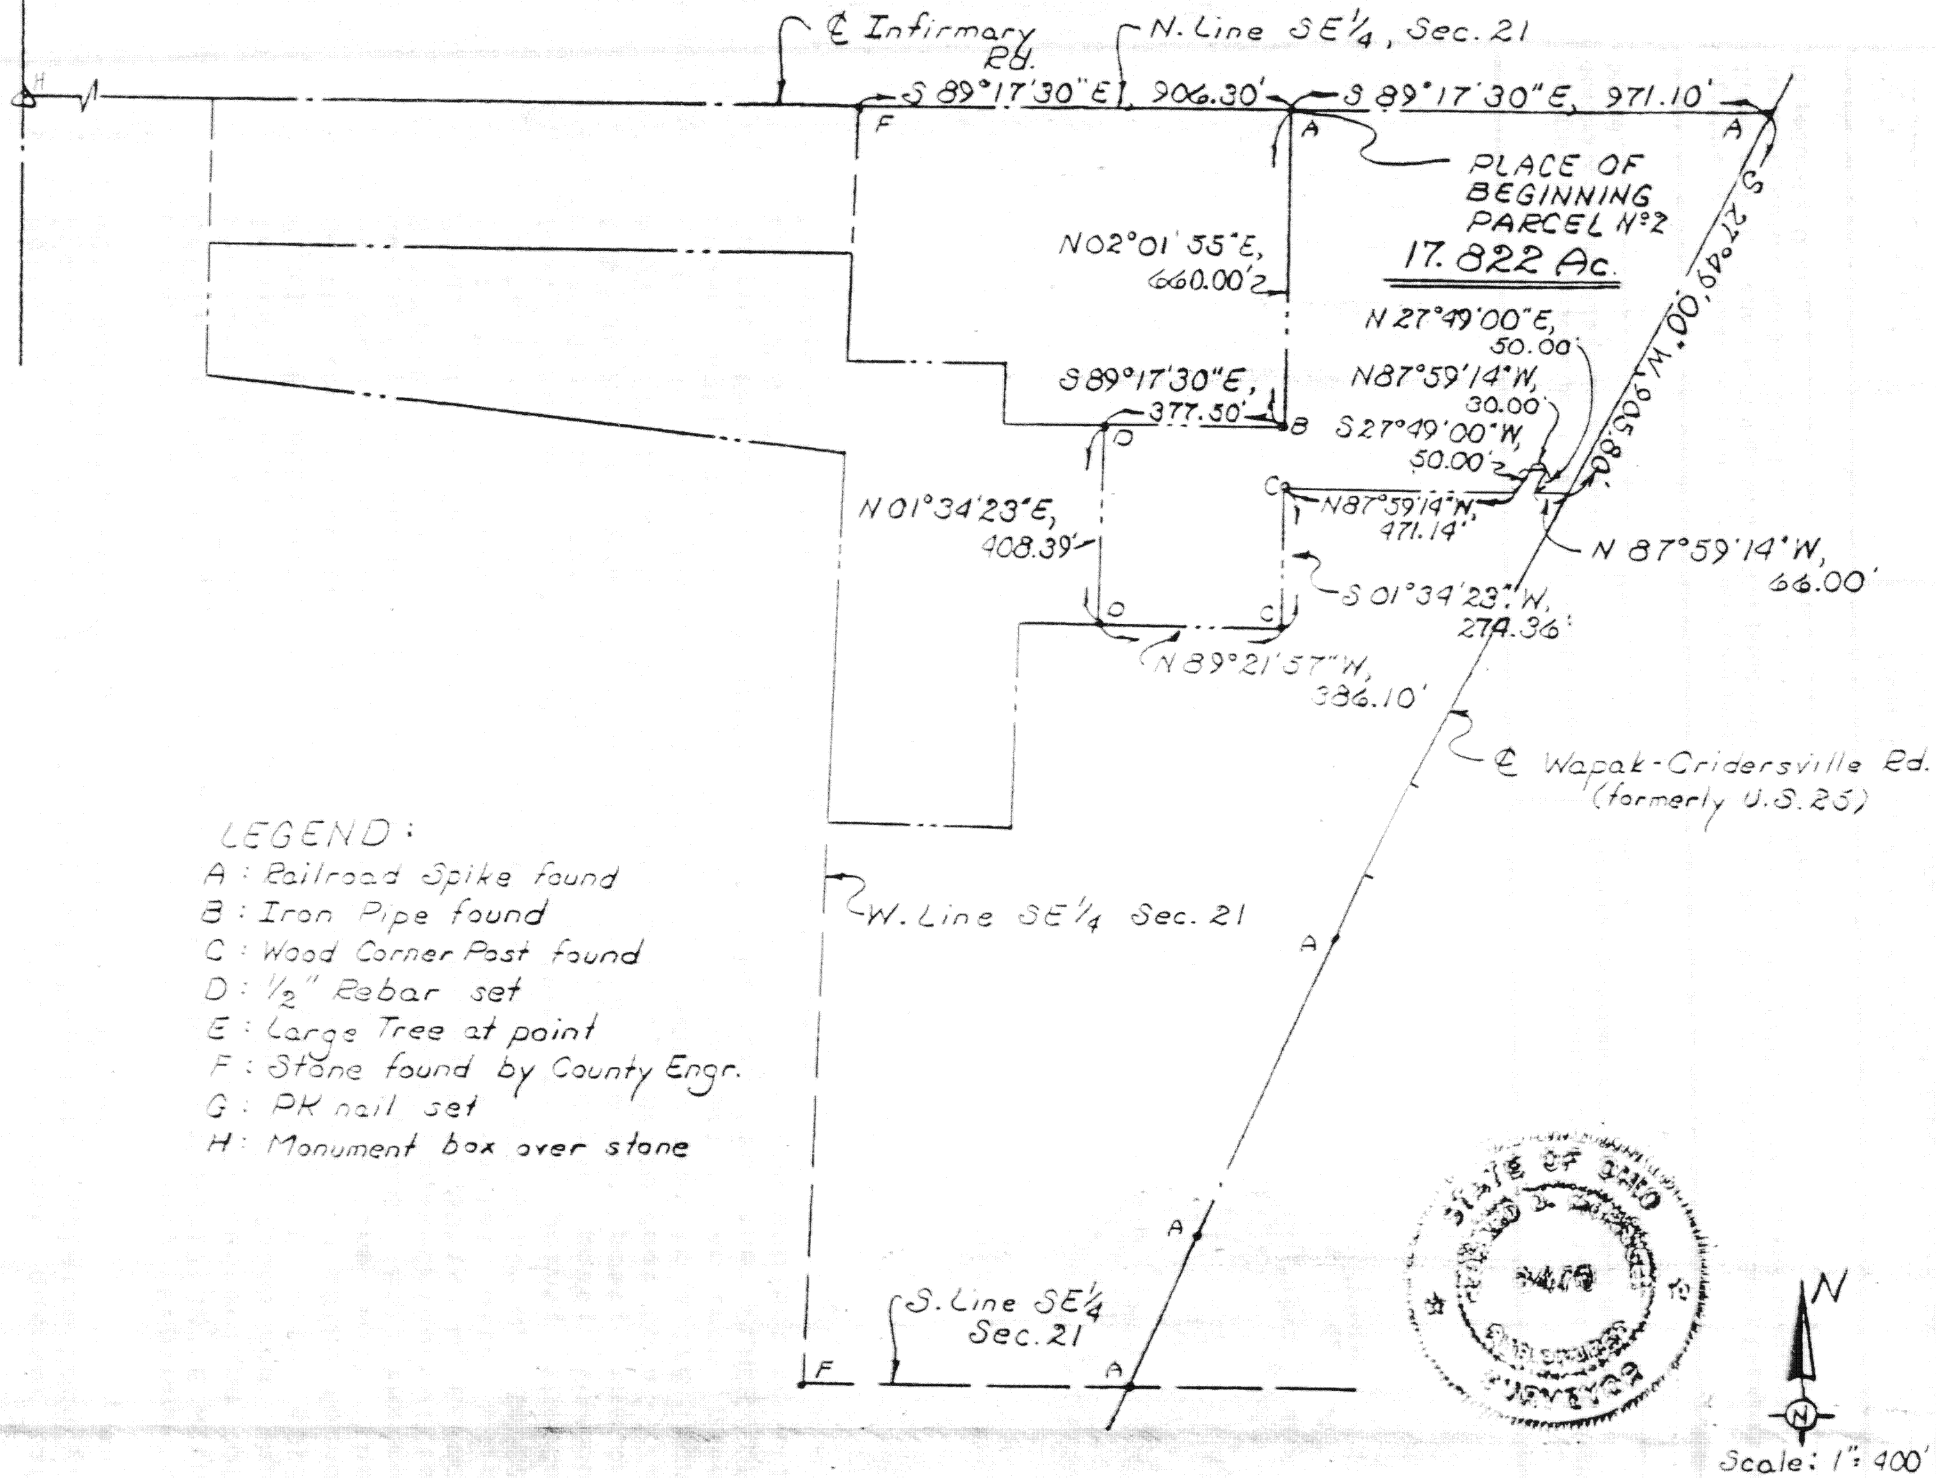 H
℄ Infirmary
Rd.
N. Line SE 1/4, Sec. 21
S 89°17'30"E, 906.30'
S 89°17'30"E, 971.10'
F
A
A
PLACE OF
BEGINNING
PARCEL Nº2
17.822 Ac.
S 27°49'00" W, 905.80'
N02°01'55"E,
660.00'
N 27°49'00"E,
50.00'
N87°59'14"W,
30.00'
S27°49'00"W,
50.00'
S89°17'30"E,
377.50'
D
B
C
N87°59'14"W,
471.14'
N 87°59'14"W,
66.00'
N 01°34'23"E,
408.39'
S 01°34'23"W,
274.36'
D
C
N 89°21'57"W,
386.10'
℄ Wapak-Cridersville Rd.
(formerly U.S. 25)
LEGEND:
A: Railroad Spike found
B: Iron Pipe found
C: Wood Corner Post found
D: 1/2" Rebar set
E: Large Tree at point
F: Stone found by County Engr.
G: PK nail set
H: Monument box over stone
W. Line SE 1/4 Sec. 21
A
A
S. Line SE 1/4
Sec. 21
F
A
STATE OF OHIO
SURVEYOR
N
N
Scale: 1"= 400'